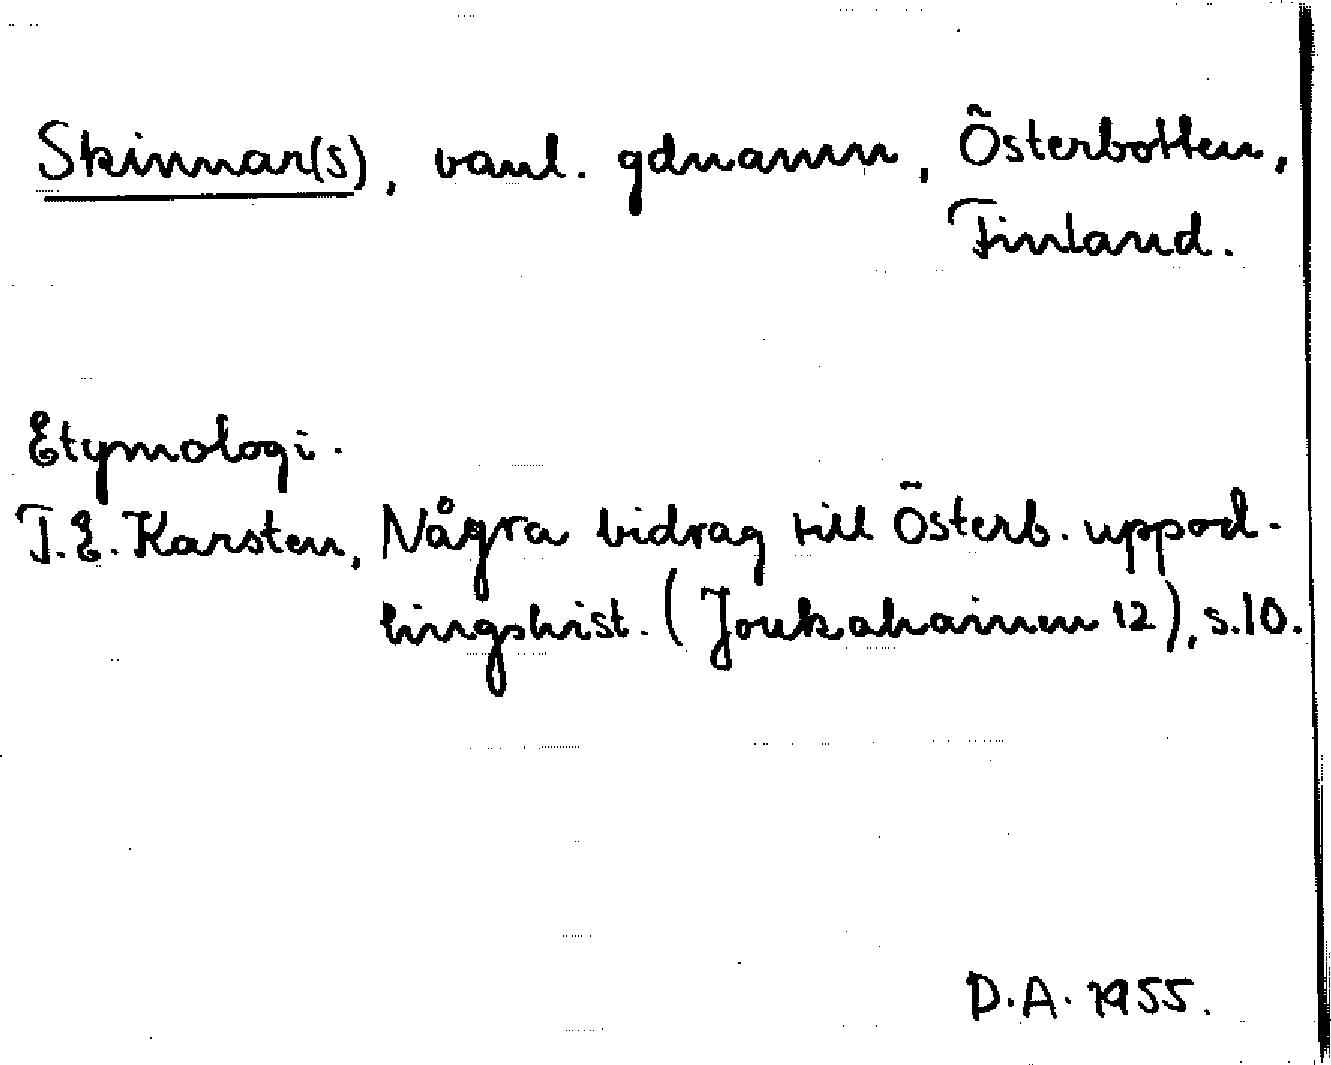 Skinnar(s), vanl. gdnamn, Österbotten,
Finland.
Etymologi.
T.E. Karsten, Några bidrag till Österb. uppod-
lingshist. (Joukahainen 12), s.10.
D.A. 1955.